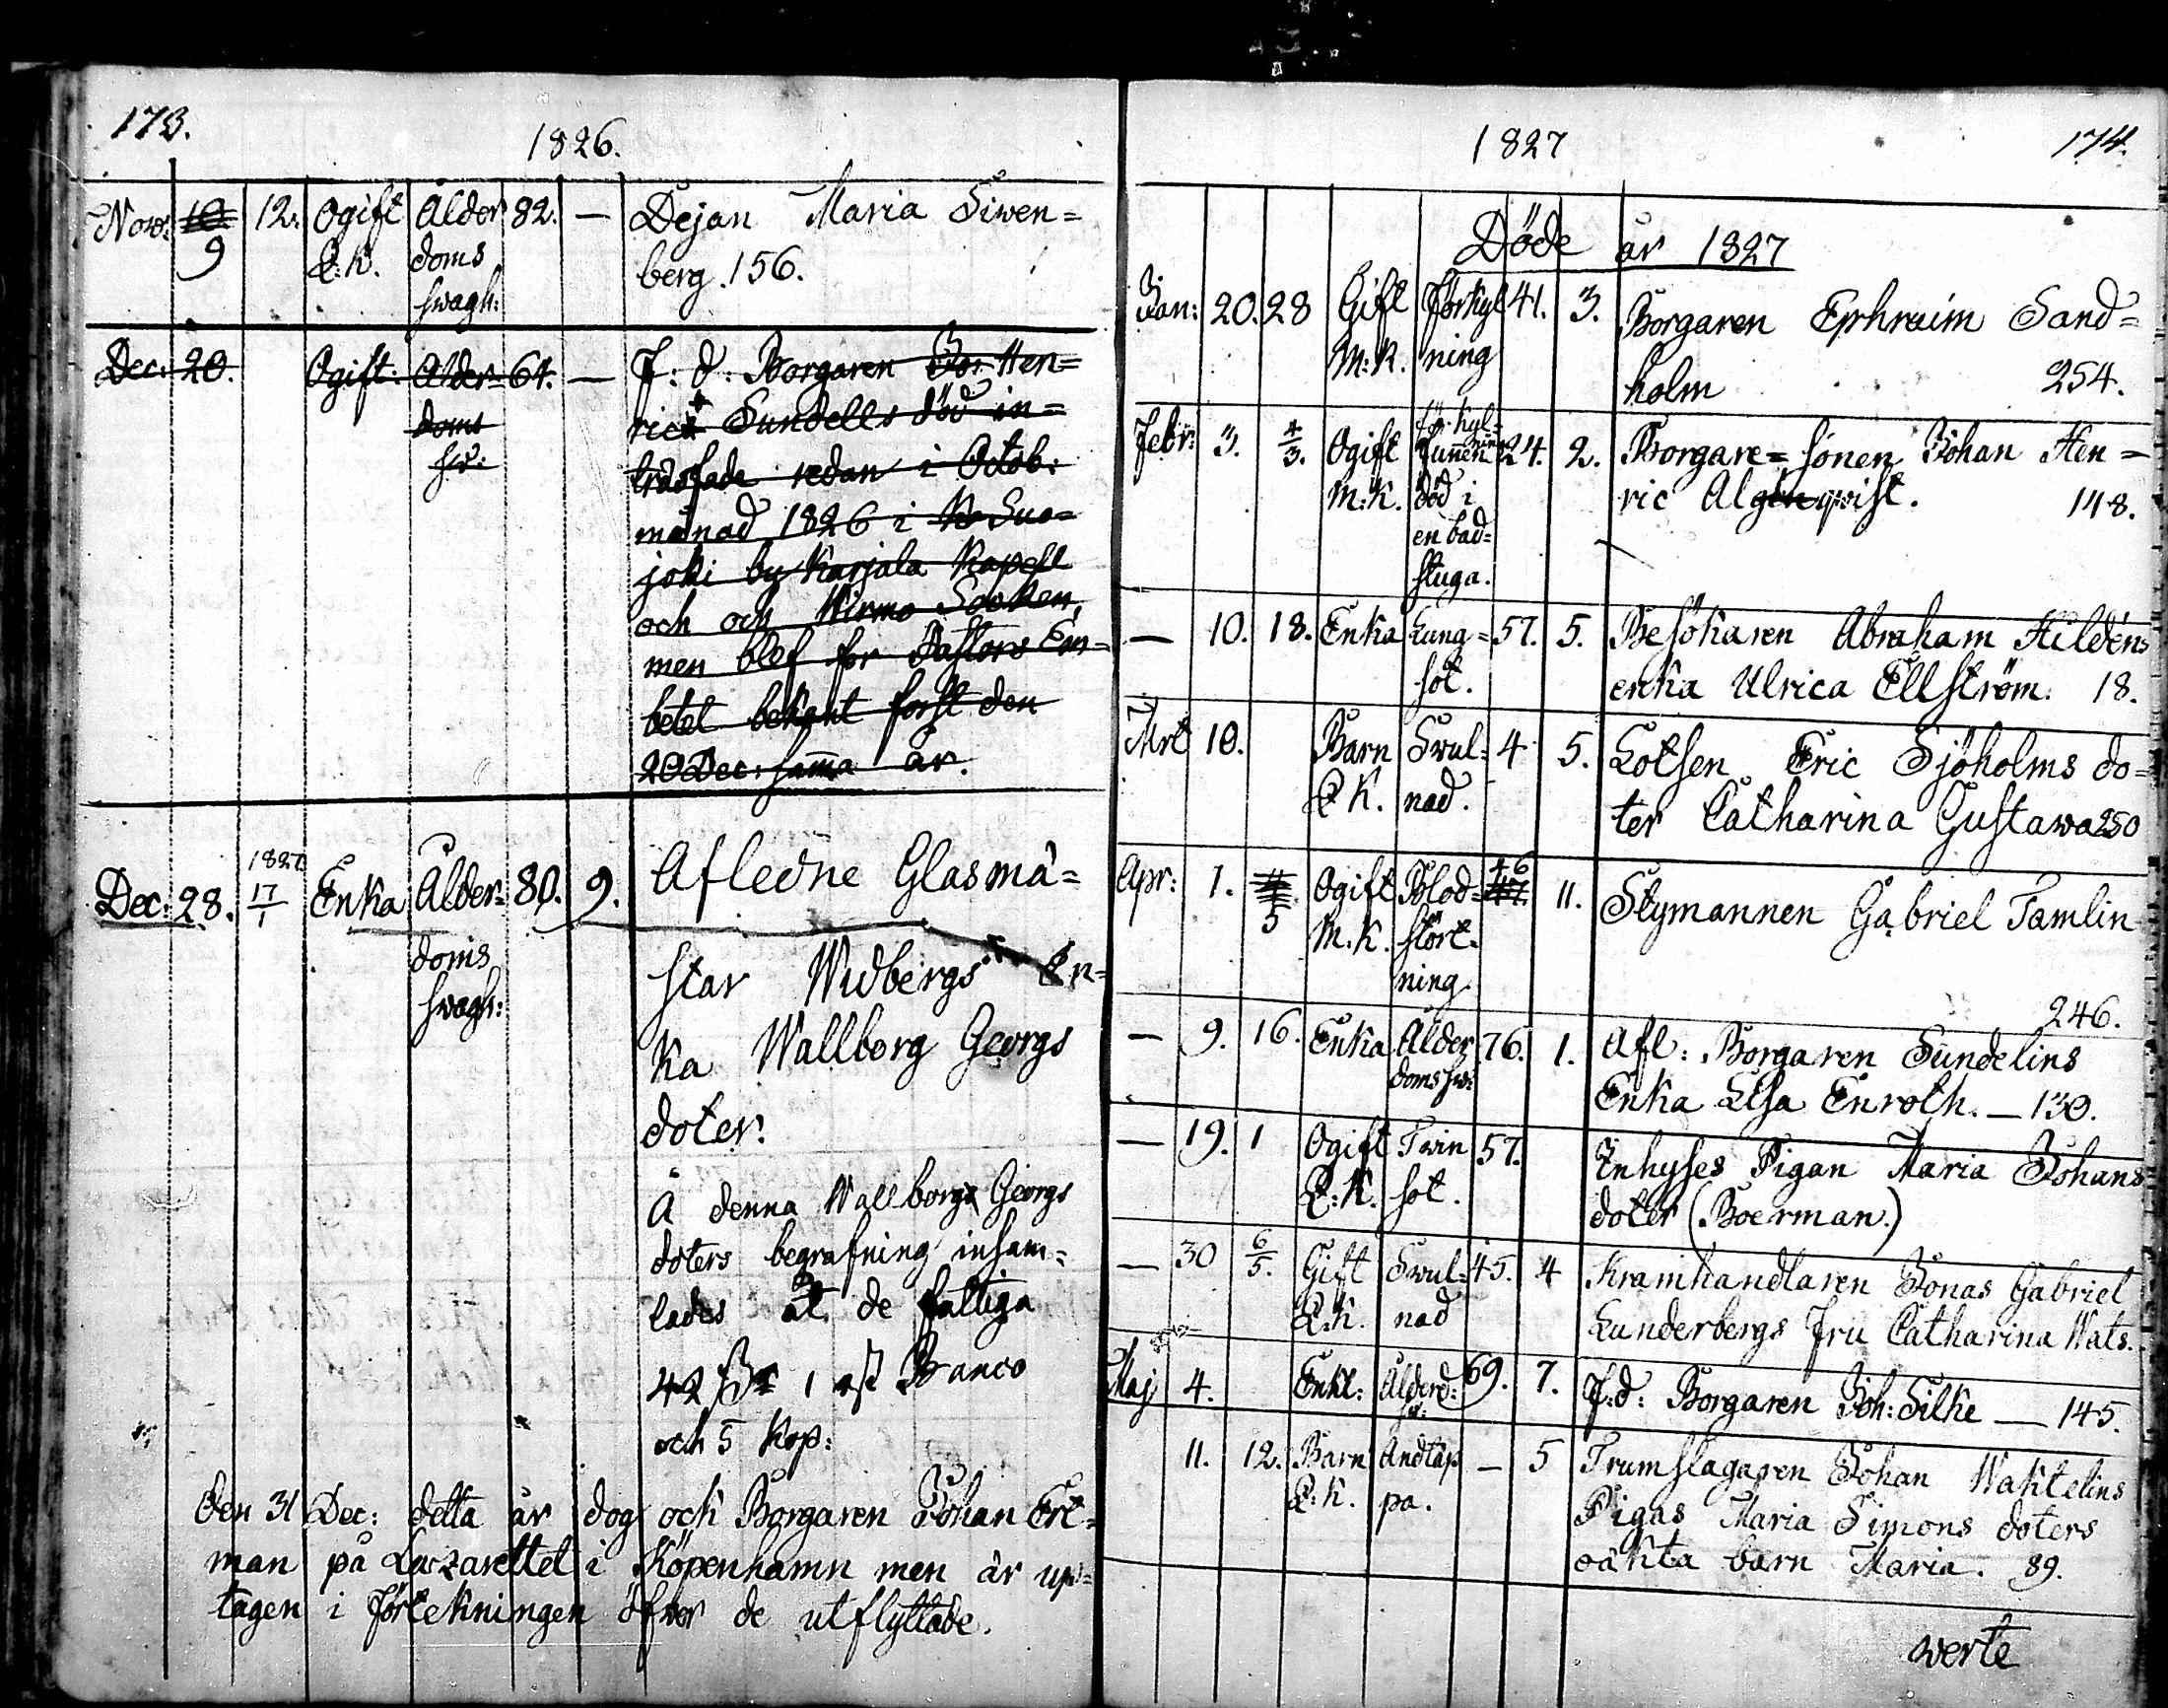 173.
1826.
Nov: 10 9 12. Ogift Ålder 82. — Dejan Maria Siwen=
Q:K. doms berg. 156.
swagh:
Dec: 20. Ogift: Ålder= 64. — F: d: Borgaren Joh Hen=
doms rics Sundells död in=
sw: träffade redan i Octob:
månad 1826 i Suo=
joki by Karjala Kapell
och och Wirmo Socken,
men blef for Pastors Em=
betet bekant först den
20 Dec: sam̄a år.
1827
Dec: 28. 17/1 Enka Ålder= 80. 9. Afledne Glasmä=
doms star Widbergs En=
swagh: ka Wallborg Georgs
doter.
Å denna Wallborgs Georgs
doters begrafning insam=
lades åt de fattiga
42 1 Banco
och 5 Kop:
Den 31 Dec: detta år dog och Borgaren Johan Ert=
man på Lazarettet i Köpenhamn men är up=
tagen i förtekningen öfwer de utflyttade.
1827
174.
Döde år 1827
Jan: 20. 28 Gift Förkyl 41. 3. Borgaren Ephraim Sand=
M:K. ning holm 254.
Febr: 3. 4/3. Ogift förkyl= ning funnen 24. 2. Borgare=sonen Johan Hen=
M:K. död i ric Algenqvist. 148.
en bad=
stuga.
— 10. 18. Enka Lung= 57. 5. Besökaren Abraham Hildéns
sot. enka Ulrica Ellström. 18.
Mrt 10. Barn Swul= 4 5. Lotsen Eric Sjöholms do=
Q K. nad. ter Catharina Gustawa 250
Apr: 1. 5 Ogift Blod= 46 47. 11. Stymannen Gabriel Tamlin
M.K. stört=
ning 246.
— 9. 16. Enka Ålder 76. 1. Afl: Borgaren Sundelins
doms sw: Enka Elsa Enroth. — 130.
— 19. 1 Ogift Twin 57. Inhyses Pigan Maria Johans
Q:K. sot. doter (Boerman.)
— 30 6/5. Gift Swul= 45. 4 Kramhandlaren Jonas Gabriel
Q:K. nad Lunderbergs fru Catharina Wats.
Maj 4. Enkl: Ålderd: 69. 7. F:d: Borgaren Joh: Silke — 145.
sw:
11. 12. Barn Andtäp — 5 Trumslagaren Johan Waktelins
Q:K. pa. Pigas Maria Simons doters
oäkta barn Maria. 89.
werte